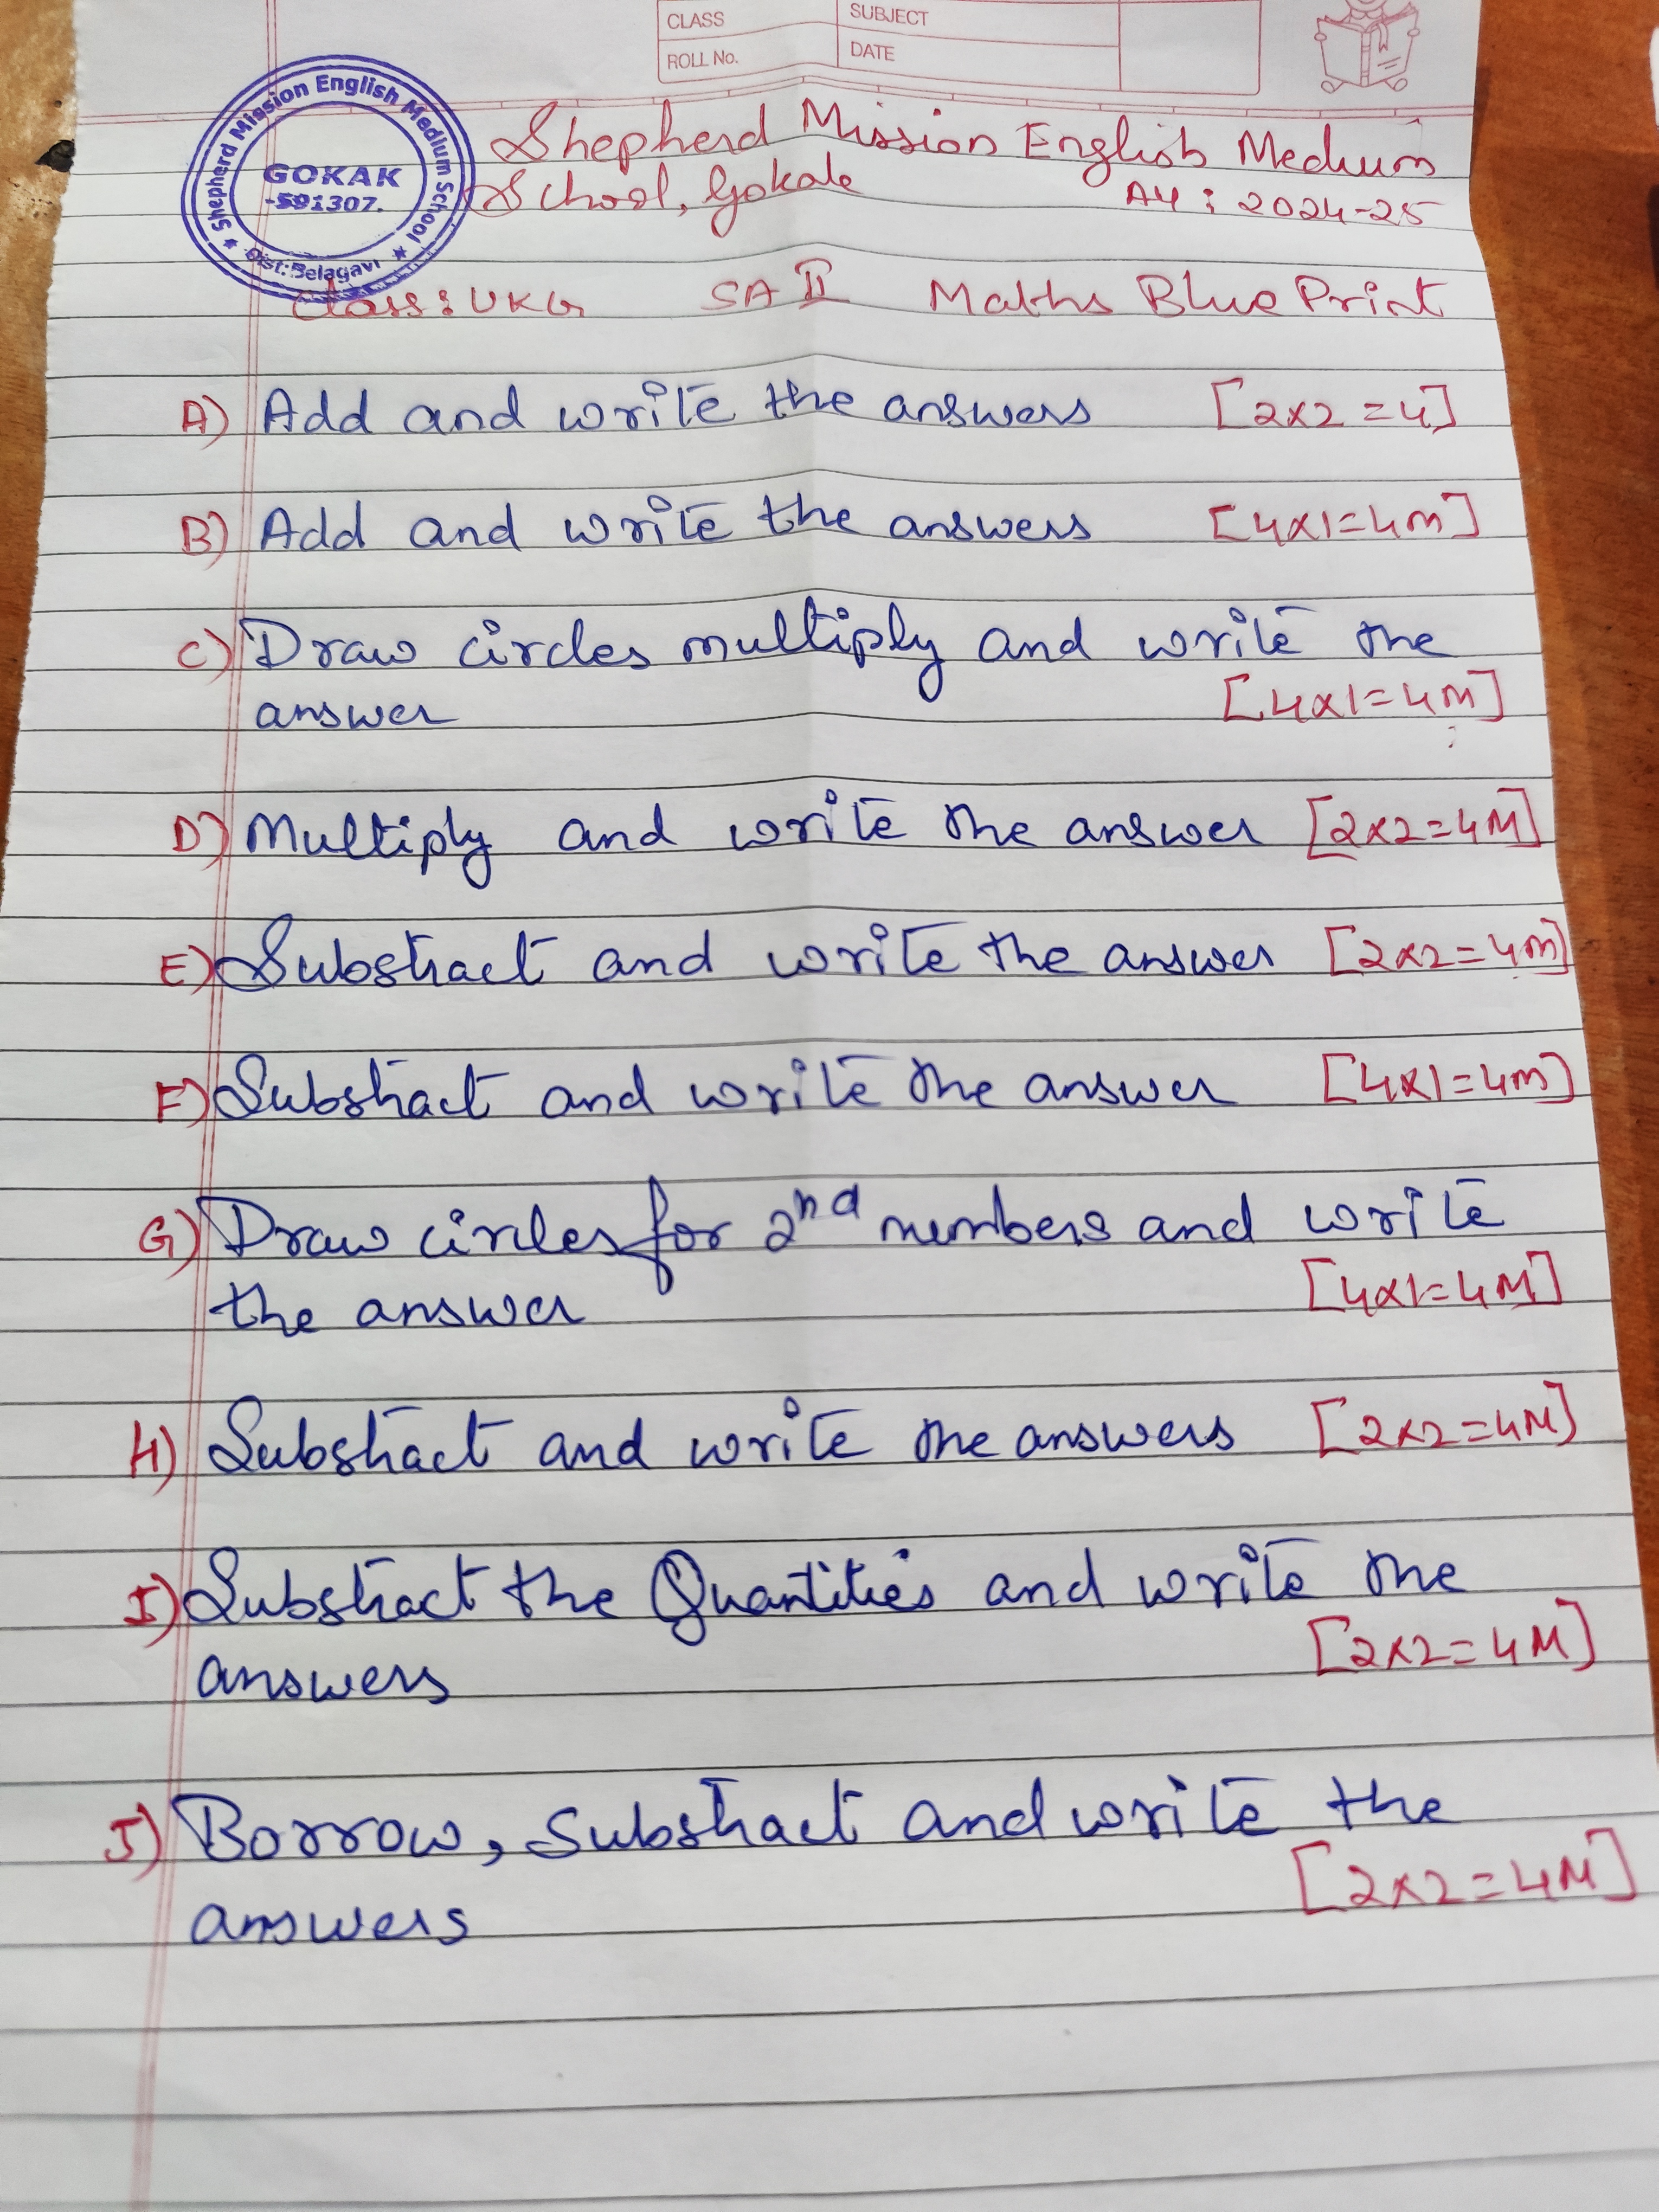 CLASS
SUBJECT
ROLL No.
DATE
Shepherd Mission English Medium School
GOKAK
-591307.
Dist:Belagavi
Shepherd Mission English Medium
School, Gokak
AY : 2024-25
Class : UKG SA II Maths Blue Print
A) Add and write the answers [2x2=4]
B) Add and write the answers [4x1=4m]
C) Draw circles multiply and write the
answer [4x1=4M]
D) Multiply and write the answer [2x2=4M]
E) Substract and write the answer [2x2=4m]
F) Substract and write the answer [4x1=4m]
G) Draw circles for 2nd numbers and write
the answer [4x1=4M]
H) Substract and write the answers [2x2=4M]
I) Substract the Quantities and write the
answers [2x2=4M]
J) Borrow, Substract and write the
answers [2x2=4M]